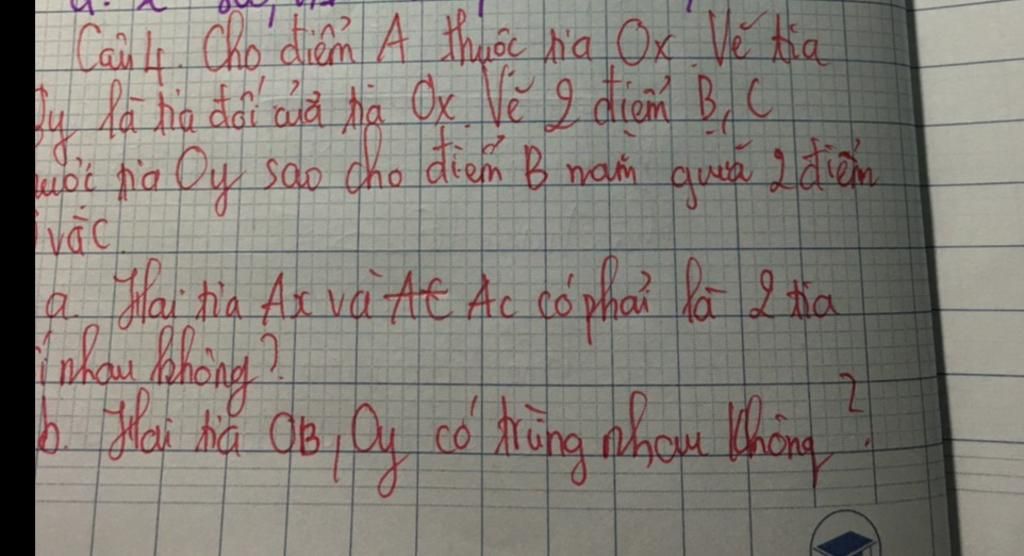 Câu 4. Cho điểm A thuộc tia Ox. Vẽ tia
là tia đối của tia Ox. Vẽ 2 điểm B, C
tia Oy sao cho điểm B nằm giữa 2 điểm
và C.
a. Hai tia Ax và Ac có phải là 2 tia
nhau không?
b. Hai tia OB, Oy có trùng nhau không?